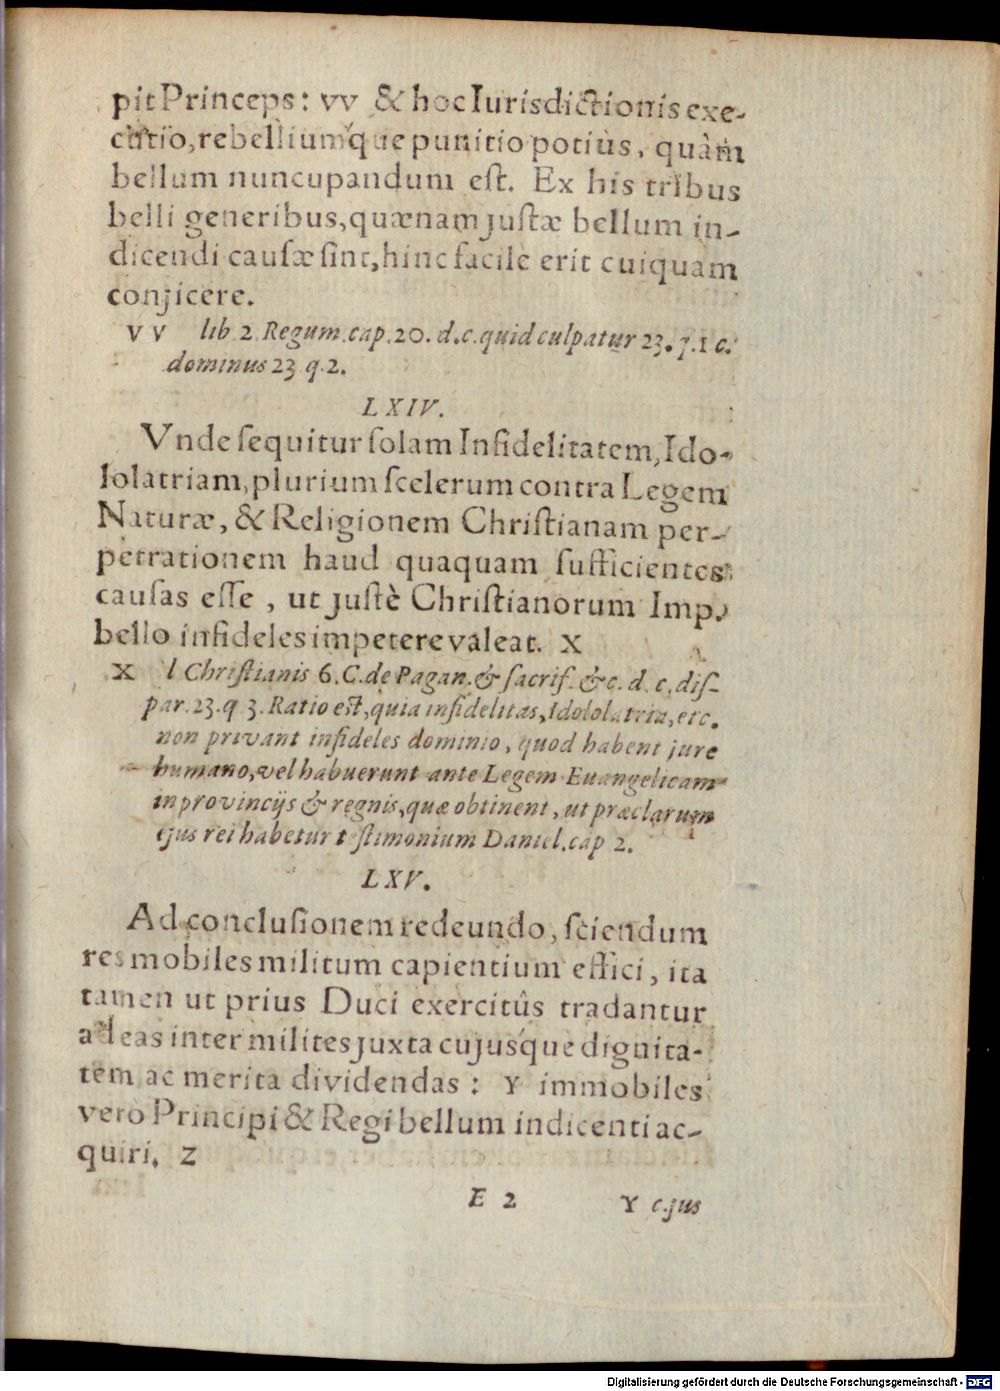 pit Princeps: vv & hoc Iurisdictionis exe-
cutio, rebelliumq́ue punitio potiùs, quàm
bellum nuncupandum est. Ex his tribus
belli generibus, quænam justæ bellum in-
dicendi causæ sint, hinc facilè erit cuiquam
conjicere.
VV lib 2. Regum. cap. 20. d. c. quid culpatur 23. q. 1 c.
dominus 23 q. 2.
LXIV.
Vnde sequitur solam Infidelitatem, Ido-
lolatriam, plurium scelerum contra Legem
Naturæ, & Religionem Christianam per-
petrationem haud quaquam sufficientes
causas esse, ut justè Christianorum Imp.
bello infideles impetere valeat. X
X l Christianis 6. C. de Pagan. & sacrif. &c. d. c. dis-
par. 23. q 3. Ratio est, quia infidelitas, Idololatria, etc.
non privant infideles dominio, quod habent jure
humano, vel habuerunt ante Legem Euangelicam
in provincijs & regnis, quæ obtinent, ut præclarum
ejus rei habetur testimonium Daniel. cap 2.
LXV.
Ad conclusionem redeundo, sciendum
res mobiles militum capientium effici, ita
tamen ut prius Duci exercitûs tradantur
ad eas inter milites juxta cujusq́ue dignita-
tem ac merita dividendas: Y immobiles
verò Principi & Regi bellum indicenti ac-
quiri. Z
E 2 Y c. jus
Digitalisierung gefördert durch die Deutsche Forschungsgemeinschaft - DFG